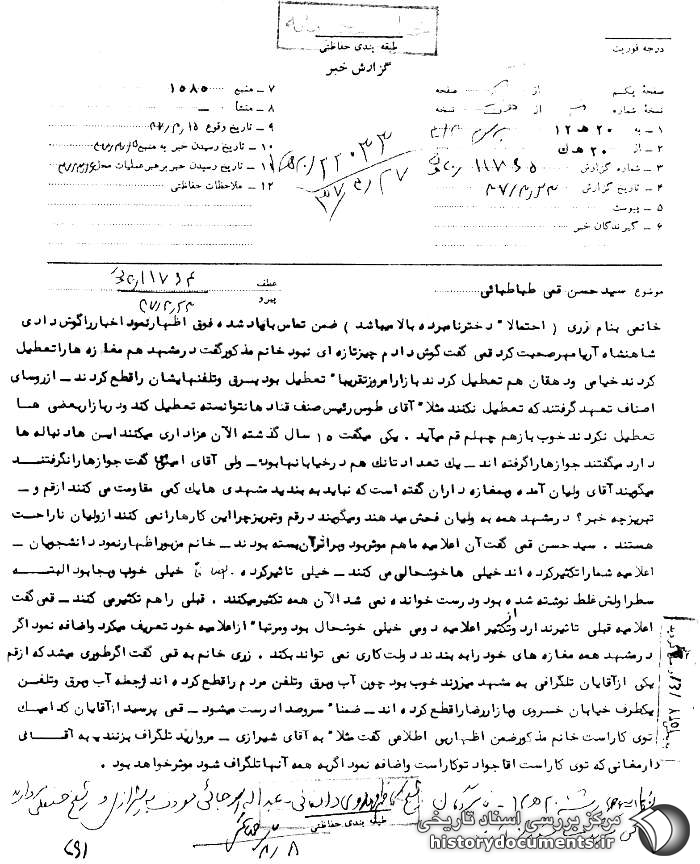 طبقه بندی حفاظتی
گزارش خبر
درجه فوریت
صفحهٔ یکم از صفحه
نسخهٔ شماره از نسخه
۱ ـ به ۲۰ هـ ۱۲
۲ ـ از ۲۰ هـ ک
۳ ـ شماره گزارش
۴ ـ تاریخ گزارش
۵ ـ پیوست
۶ ـ گیرندگان خبر
۷ ـ منبع ۱۵۸۵
۸ ـ منشأ
۹ ـ تاریخ وقوع
۱۰ ـ تاریخ رسیدن خبر به منبع
۱۱ ـ تاریخ رسیدن خبر برهبر عملیات محل
۱۲ ـ ملاحظات حفاظتی
۲۲۰۳۳
موضوع سید حسن قمی طباطبائی
عطف
پیرو
خانمی بنام زری ( احتمالا" دخترنامبرده بالا میباشد ) ضمن تماس بایاد شده فوق اظهارنمود اخبار راگوش دادی
شاهنشاه آریامهر صحبت کرد قمی گفت گوش دادم چیزتازه ای نبود خانم مذکور گفت درمشهد هم مغازه هارا تعطیل
کردند خیامی ودهقان هم تعطیل کردند بازار امروز تقریبا" تعطیل بود برق وتلفنهایشان راقطع کردند ـ از روسای
اصناف تعهد گرفتند که تعطیل نکنند مثلا" آقای طوس رئیس صنف قنادها نتوانسته تعطیل کند و دربازار بعضی ها
تعطیل نکردند خوب بازهم چهلم قم میآید . یکی میگفت ۱۵ سال گذشته الآن عزاداری میکنند این هادنباله ها
دارد میگفتند جوازهارا گرفته اند ـ یک تعداد تانک هم در خیابانها بود ـ ولی آقای امینی گفت جوازها را نگرفتند
میگویند آقای ولیان آمده وبمغازه داران گفته است که نباید به بندید مشهدی ها یک کمی مقاومت می کنند ازقم و ـ
تبریز چه خبر؟ درمشهد همه به ولیان فحش میدهند ومیگویند درقم وتبریز چرا این کارها را نمی کنند از ولیان ناراحت
هستند . سید حسن قمی گفت آن اعلامیه ما هم موثر بود وبراثر آن بسته بودند ـ خانم مزبور اظهارنمود دانشجویان ـ
اعلامیه شما را تکثیر کرده اند خیلی ها خوشحالی می کنند ـ خیلی تاثیر کرده . خیلی خوب وبجابود البته
سطر اولش غلط نوشته شده بود ودرست خوانده نمی شد الآن همه تکثیر میکنند . قبلی راهم تکثیر می کنند ـ قمی گفت
اعلامیه قبلی تاثیر ندارد واز تکثیر اعلامیه دومی خیلی خوشحال بود ومرتبا" از اعلامیه خود تعریف میکرد واضافه نمود اگر
درمشهد همه مغازه های خود را به بندند دولت کاری نمی تواند بکند . زری خانم به قمی گفت اگر طوری میشد که از قم
یکی از آقایان تلگرافی به مشهد میزدند خوب بود چون آب وبرق وتلفن مردم را قطع کرده اند ازجمله آب وبرق وتلفن
یکطرف خیابان خسروی وبازار رضا را قطع کرده اند ـ ضمنا" سروصدا درست میشود ـ قمی پرسید از آقایان کدامیک
توی کار است خانم مذکور ضمن اظهار بی اطلاعی گفت مثلا" به آقای شیرازی ـ مروارید تلگراف بزنند یا به آقای
دامغانی که توی کار است آقا جواد تو کار است واضافه نمود اگر به همه آنها تلگراف شود موثر خواهد بود .
طبقه بندی حفاظتی
مرکز بررسی اسناد تاریخی
historydocuments.ir